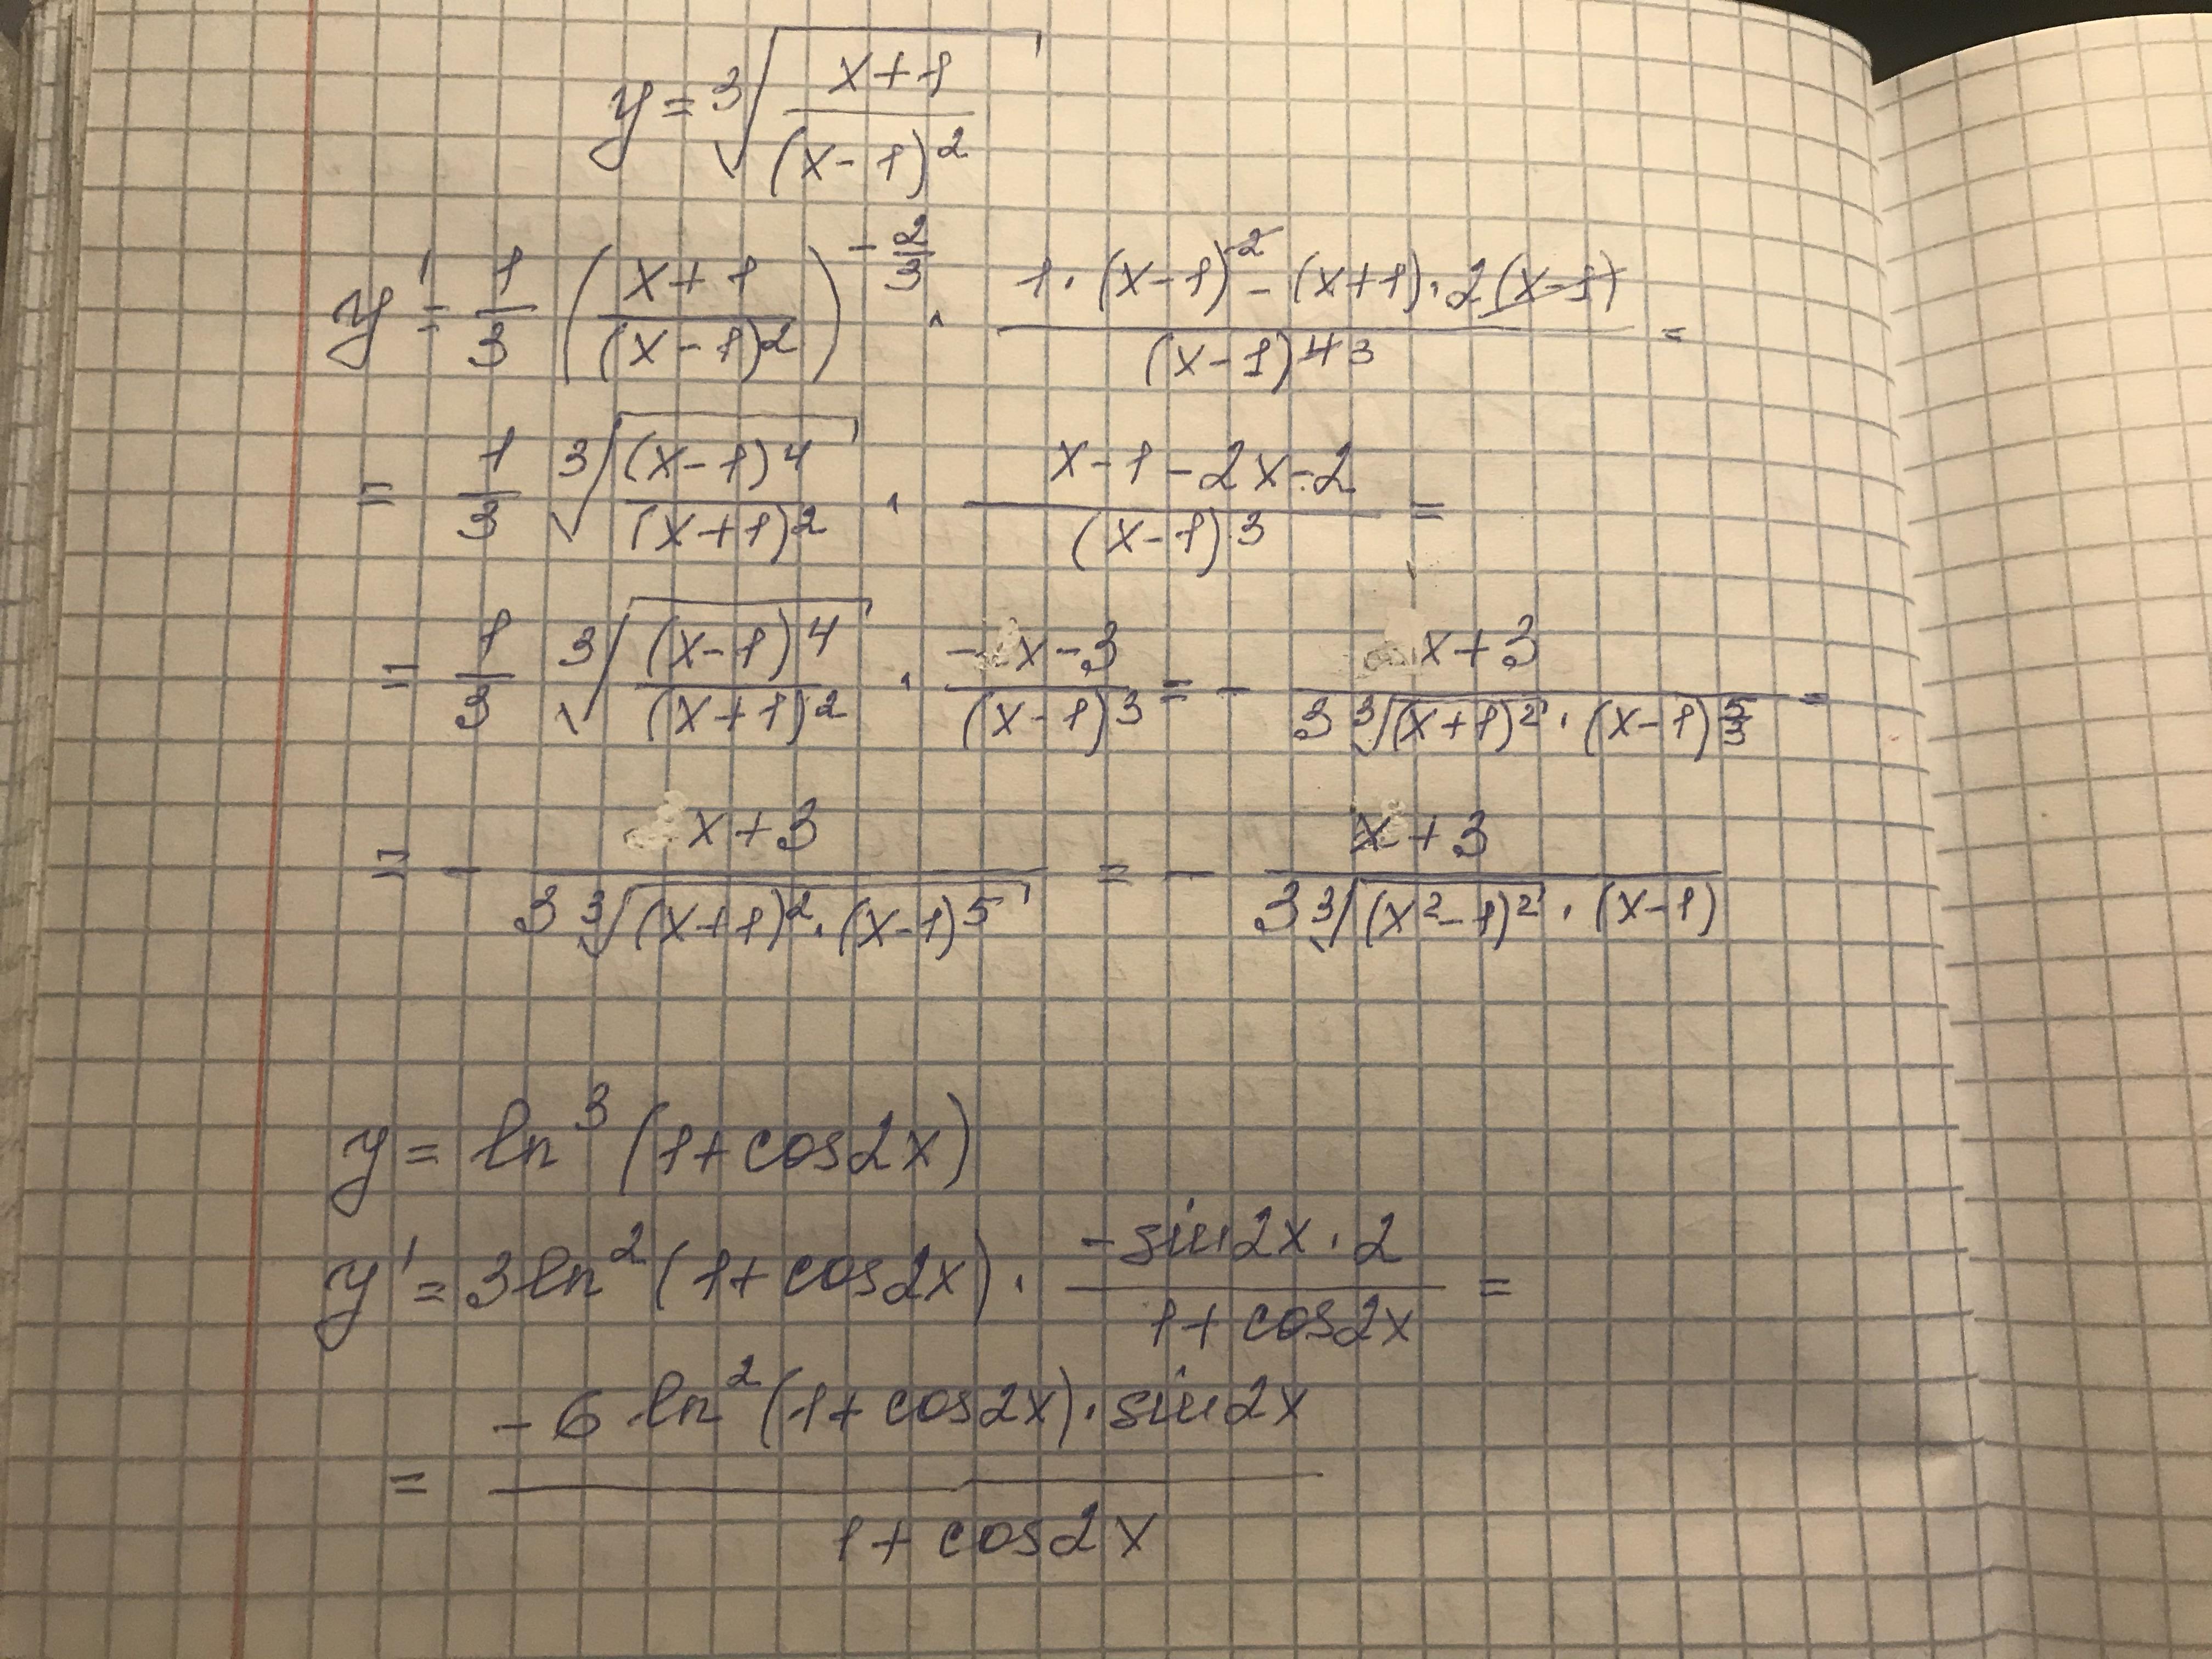 y = ∛((x+1)/(x-1)²)
y' = 1/3 ((x+1)/(x-1)²)^(-2/3) · (1·(x-1)² - (x+1)·2(x-1))/(x-1)^4 3 =
= 1/3 ∛((x-1)⁴/(x+1)²) · (x-1-2x-2)/(x-1)³ =
= 1/3 ∛((x-1)⁴/(x+1)²) · (-x-3)/(x-1)³ = - (x+3)/(3∛(x+1)² · (x-1)^(5/3)) =
= - (x+3)/(3∛((x+1)²·(x-1)⁵)) = - (x+3)/(3∛(x²-1)² · (x-1))
y = ln³(1+cos2x)
y' = 3ln²(1+cos2x) · (-sin2x·2)/(1+cos2x) =
= (-6 ln²(1+cos2x)·sin2x)/(1+cos2x)